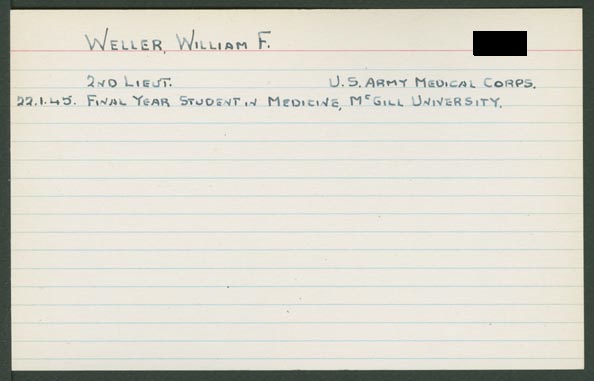 WELLER, WILLIAM F.
2ND LIEUT. U.S. ARMY MEDICAL CORPS.
22.1.45. FINAL YEAR STUDENT IN MEDICINE, MCGILL UNIVERSITY.